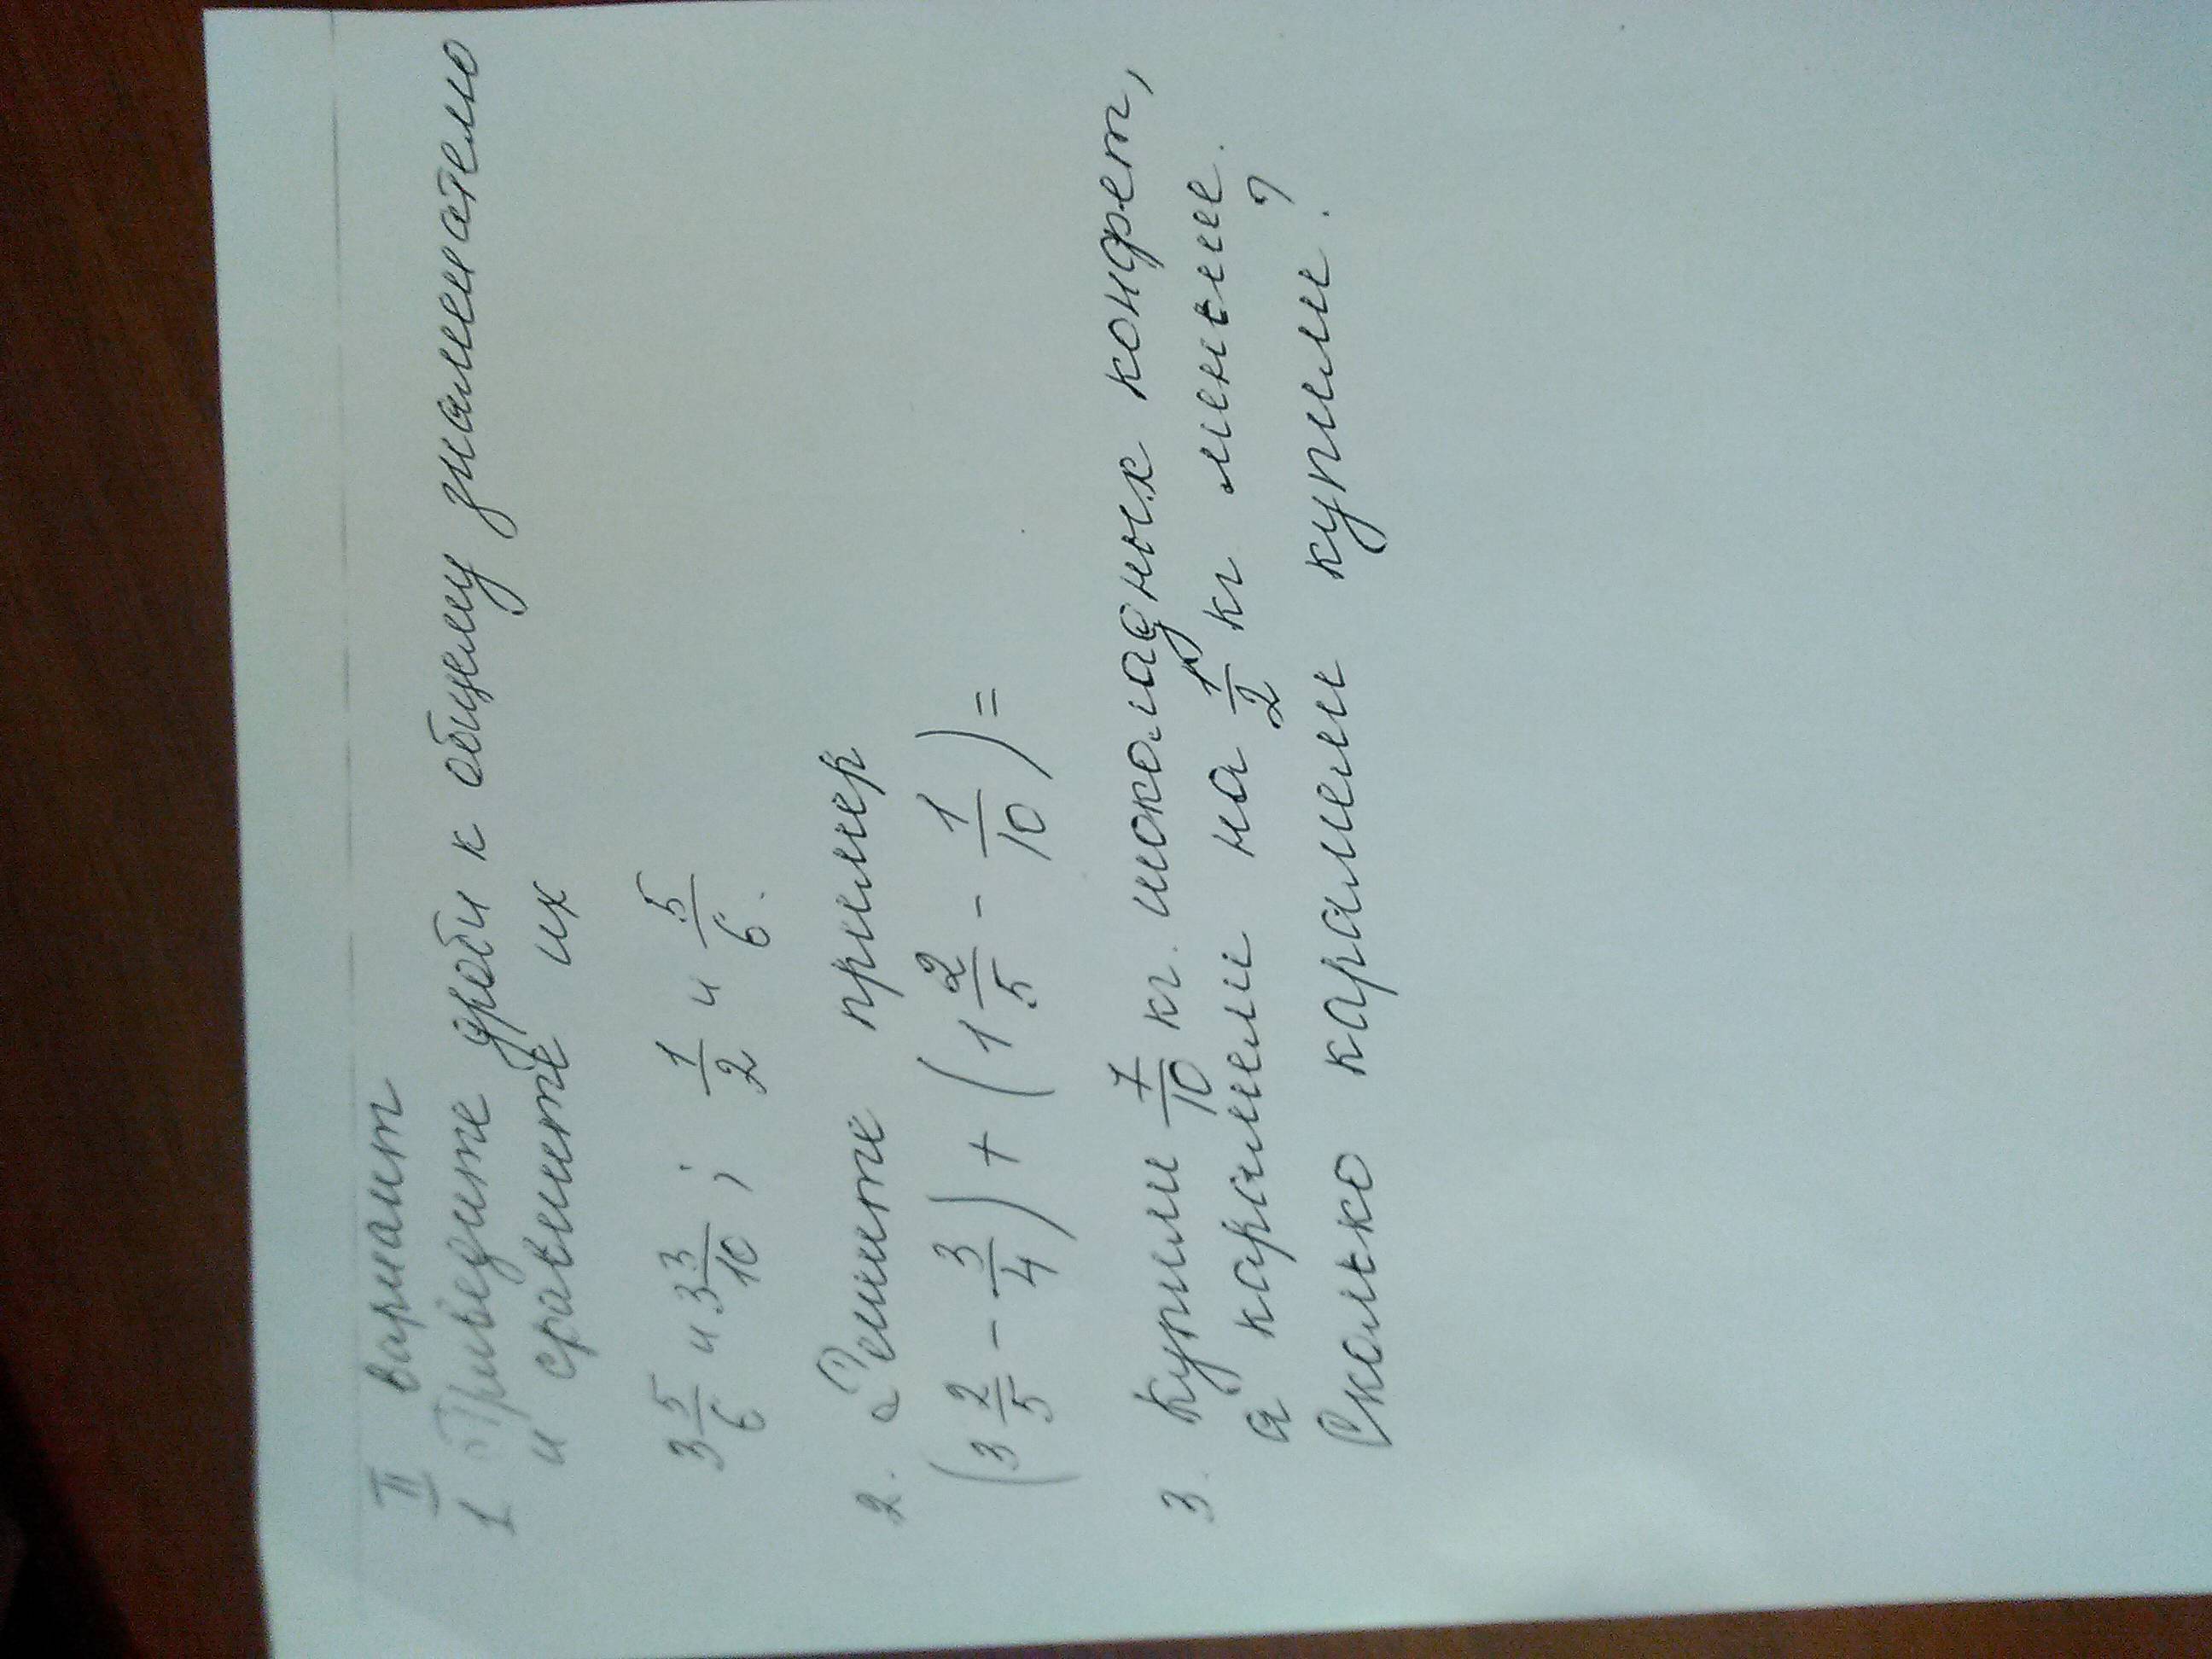 II вариант
1 Приведите дроби к общему знаменателю
и сравните их
3 5/6 и 3 3/10 ; 1/2 и 5/6.
2. Решите пример
(3 2/5 - 3/4) + (1 2/5 - 1/10) =
3. Купили 7/10 кг. шоколадных конфет,
а карамели на 1/2 кг меньше.
Сколько карамели купили?